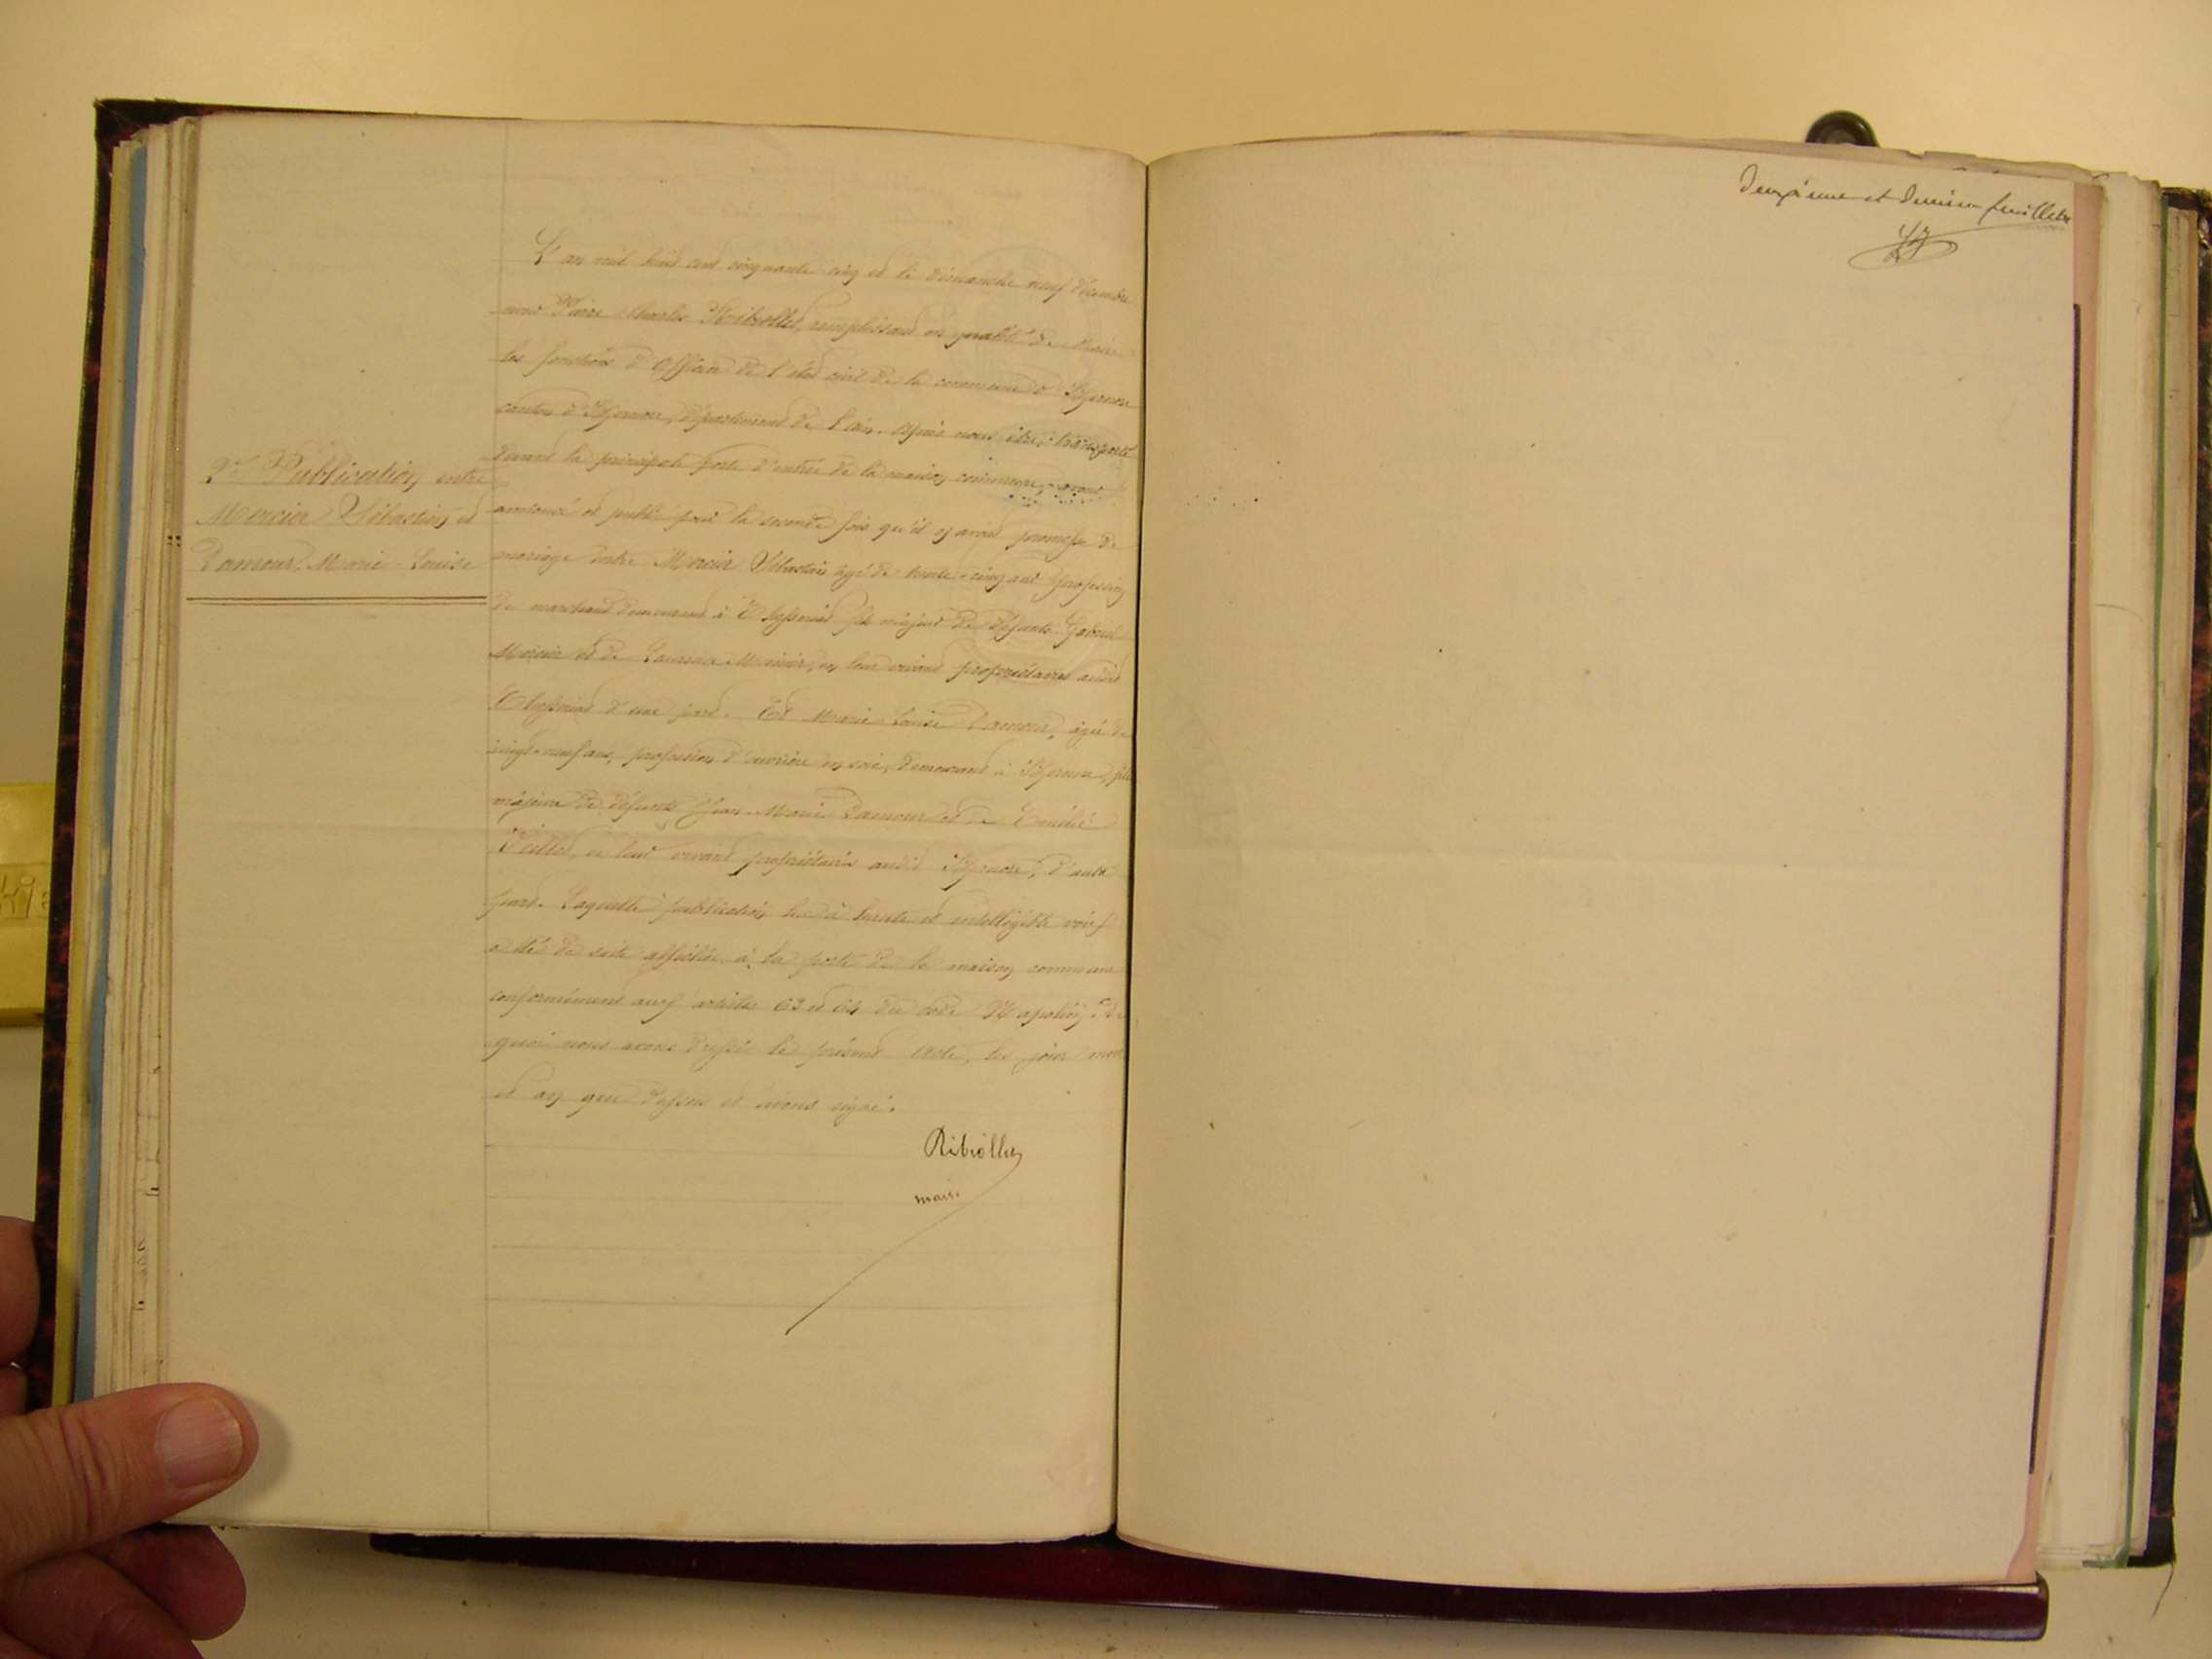 2e Publication entre
Mercier Sébastien et
Damour Marie Louise
L'an mil huit cent cinquante cinq et le dimanche neuf décembre
nous Pierre Charles Ribrollet, remplissant en qualité de Maire
les fonctions d'Officier de l'état civil de la commune d'Izernore
canton d'Izernore, département de l'ain. Après nous être transporté
devant la principale porte d'entrée de la maison commune, avons
annoncé et publié pour la seconde fois qu'il y avait promesse de
mariage entre Mercier Sébastien âgé de trente-cinq ans profession
de marchand demeurant à fils majeur de défunts Gabriel
Mercier et de Laurence Mercier, en leur vivant propriétaires audit
d'une part. Et Marie Louise Damour, âgée de
vingt-neuf ans, profession d'ouvrière en soie, demeurant à Izernore, fille
majeure de défunts Jean-Marie Damour et de Emélie
en leur vivant propriétaires audit Izernore, d'autre
part. Laquelle publication lue à haute et intelligible voix
a été de suite affichée à la porte de la maison commune
conformément aux articles 63 et 64 du code Napoléon. De
quoi nous avons dressé le présent acte, les jour mois
et an que dessus et avons signé.
Ribrollet
maire
Deuxième et dernier feuillet